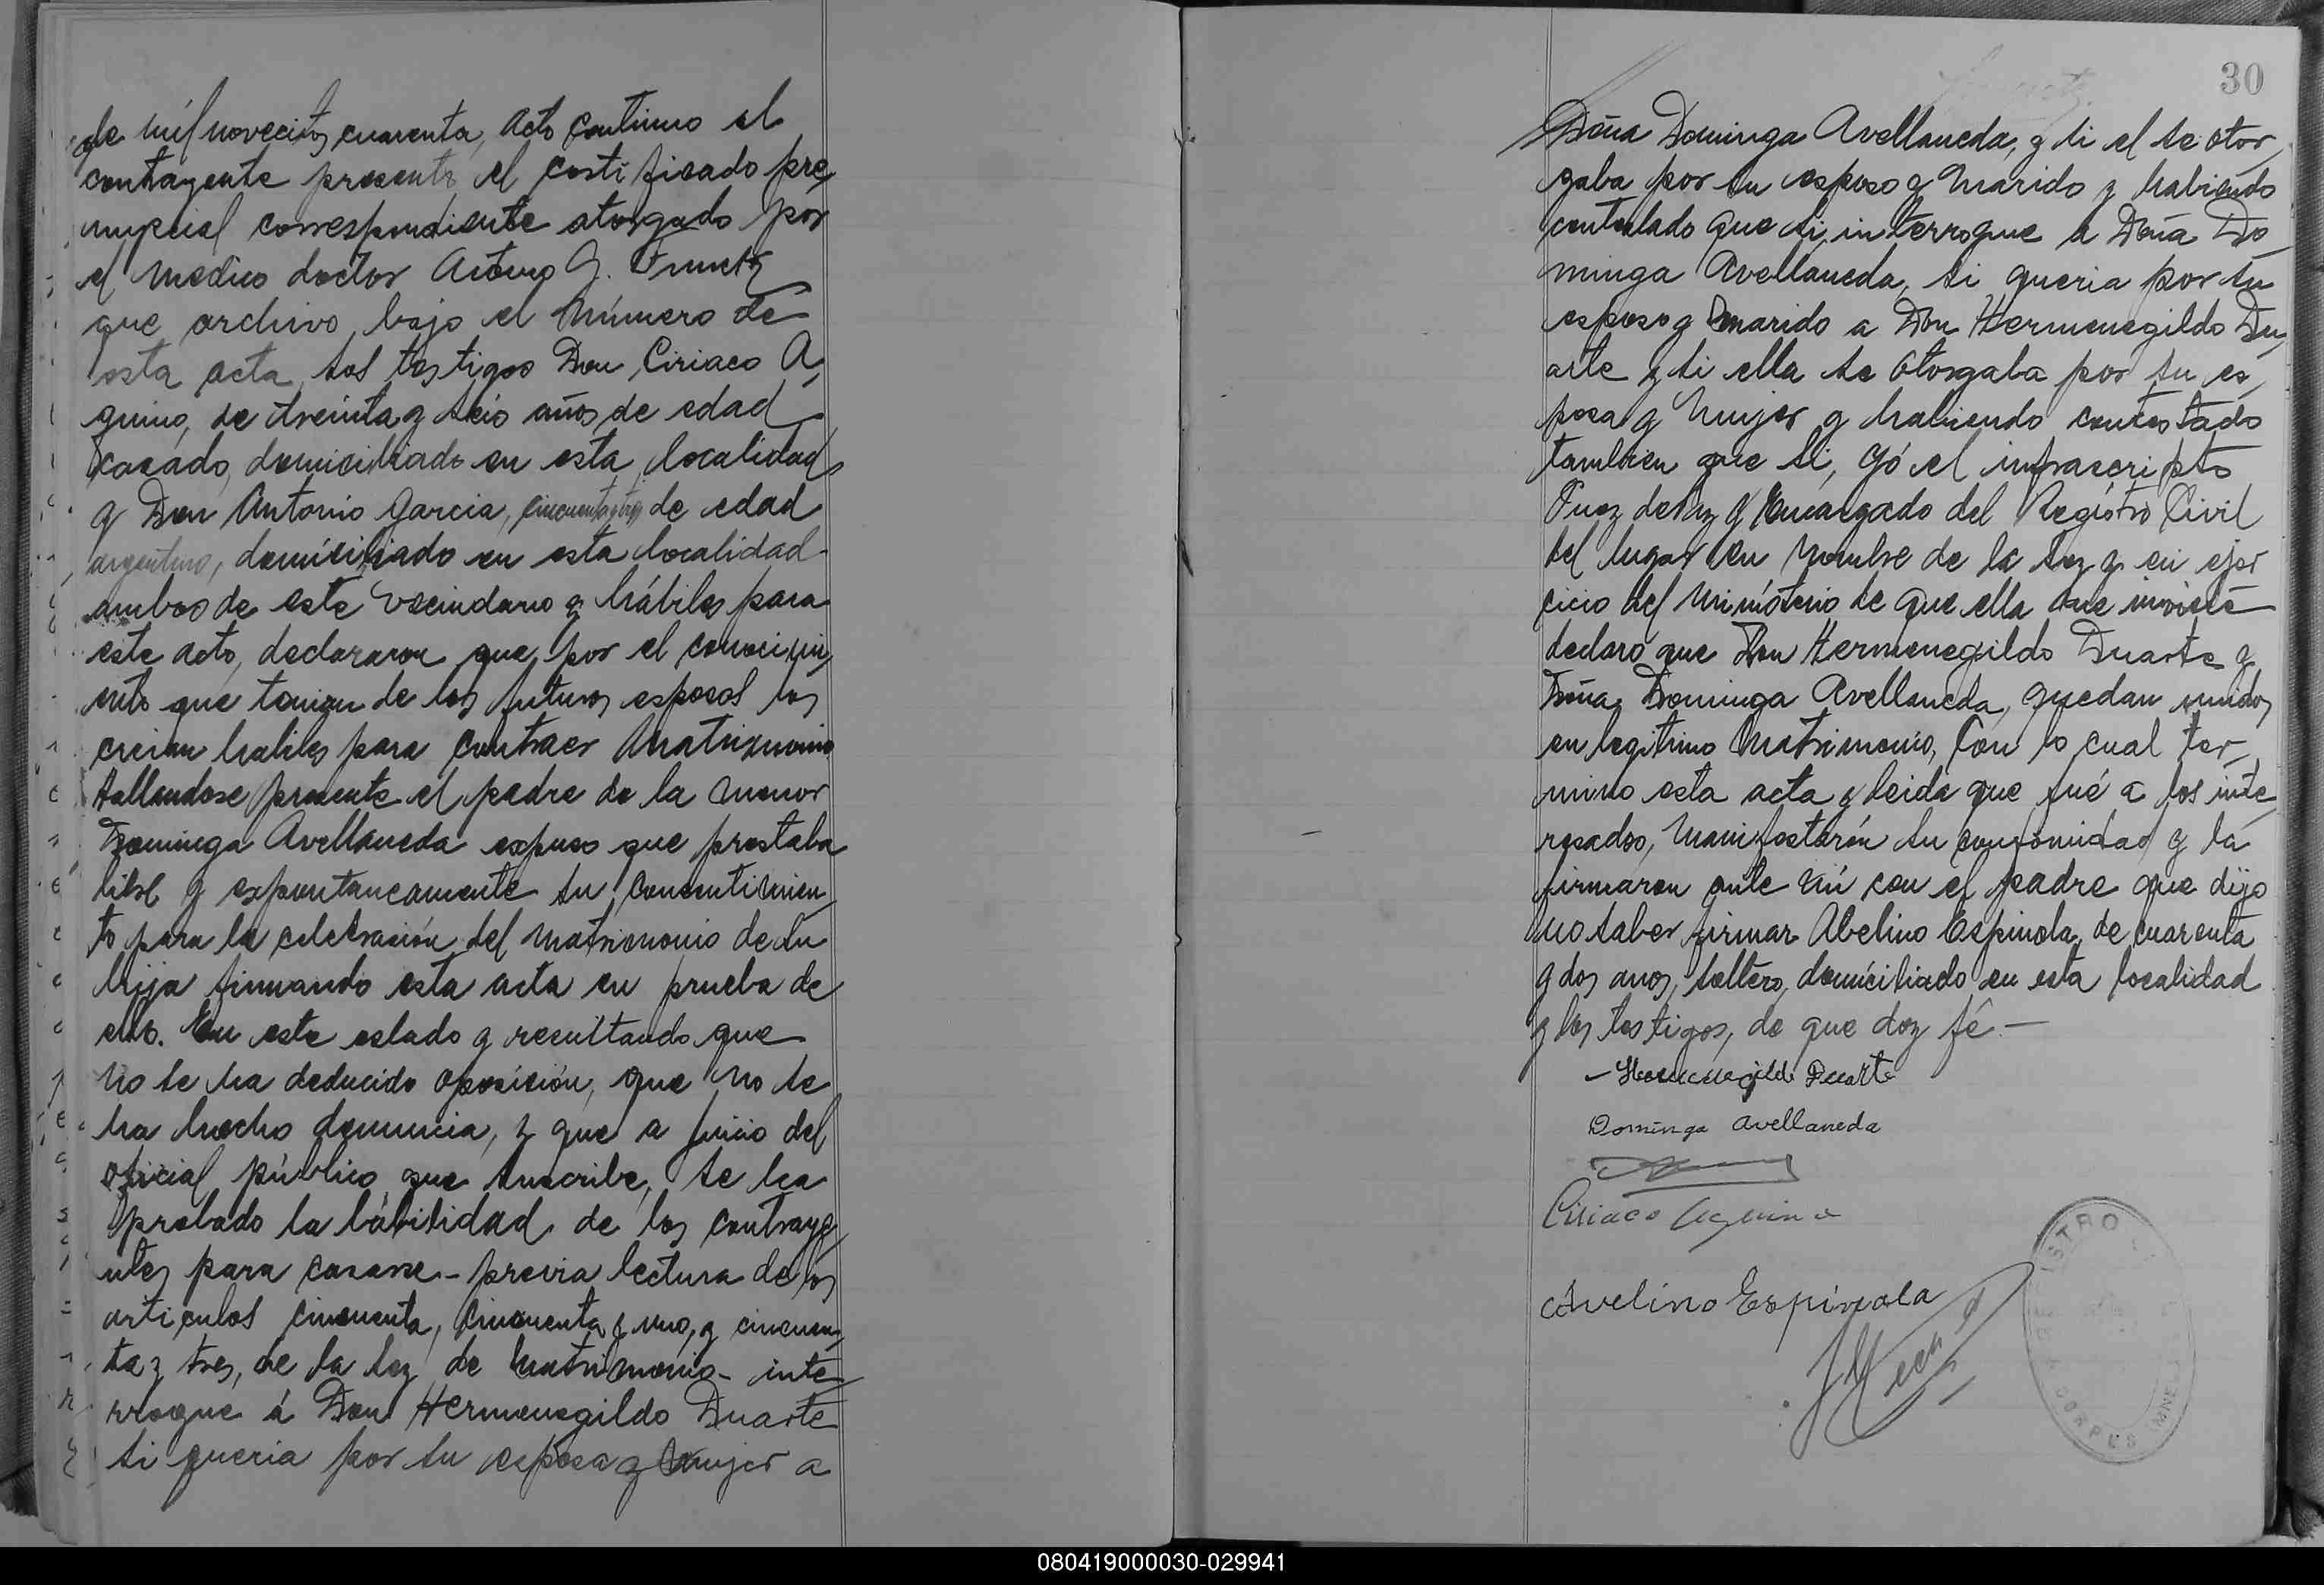 de mil novecitos cuarenta, acto continuo el
contrayente presenta el certificado pre
nupcial correspondiente otorgado por
el medico doctor Arturo J.
que archivo bajo el número de
esta acta, los testigos Don Ciriaco A
quino, de treinta y seis años de edad
casado, domiciliado en esta localidad
y Don Antonio Garcia, cincuenta y tres de edad
argentino, domiciliado en esta localidad
ambos de este vecindario y hábiles para
este acto, declararon que por el conocimi
ento que tenian de los futuros esposos los
creian habiles para contraer Matrimonio
Hallandose presente el padre de la menor
Dominga Avellaneda expuso que prestaba
libre y espontaneamente su consentimien
to para la celebrasión del matrimonio de su
hija firmando esta acta en prueba de
ello. En este estado y resultando que
no se ha deducido oposición, que no se
ha hecho denuncia, y que a juicio del
oficial público que suscribe, se ha
probado la habilidad de los contraye
ntes para casarse - previa lectura de los
articulos cincuenta, cincuenta y uno, y cincuen
ta y tres, de la ley de Matrimonio - inte
rrogue á Don Hermenegildo Duarte
si queria por su esposa y mujer a
30
Doña Dominga Avellaneda, y si el se otor
gaba por su esposo y marido y habiendo
contestado que si, interrogue a Doña Do
minga Avellaneda, si queria por su
esposo y marido a Don Hermenegildo Du
arte y si ella se otorgaba por su es
posa y mujer y habiendo contestado
tambien que si, yó el infrascripto
Juez de Paz y Encargado del Registro Civil
del lugar en nombre de la ley y en ejer
cicio del ministerio de que ella me inviste
declaro que Don Hermenegildo Duarte y
Doña Dominga Avellaneda, quedan unidos
en legitimo Matrimonio, Con lo cual ter
mino esta acta y leida que fué a los inte
resados, manifestarón su conformidad y la
firmaron ante mí con el padre que dijo
no saber firmar Abelino Espinola, de cuarenta
y dos anos, soltero, domiciliado en esta localidad
y los testigos, de que doy fé.-
- Hermenegildo Duarte
Dominga Avellaneda
Ciriaco Aquino
Avelino Espinola
CORPUS